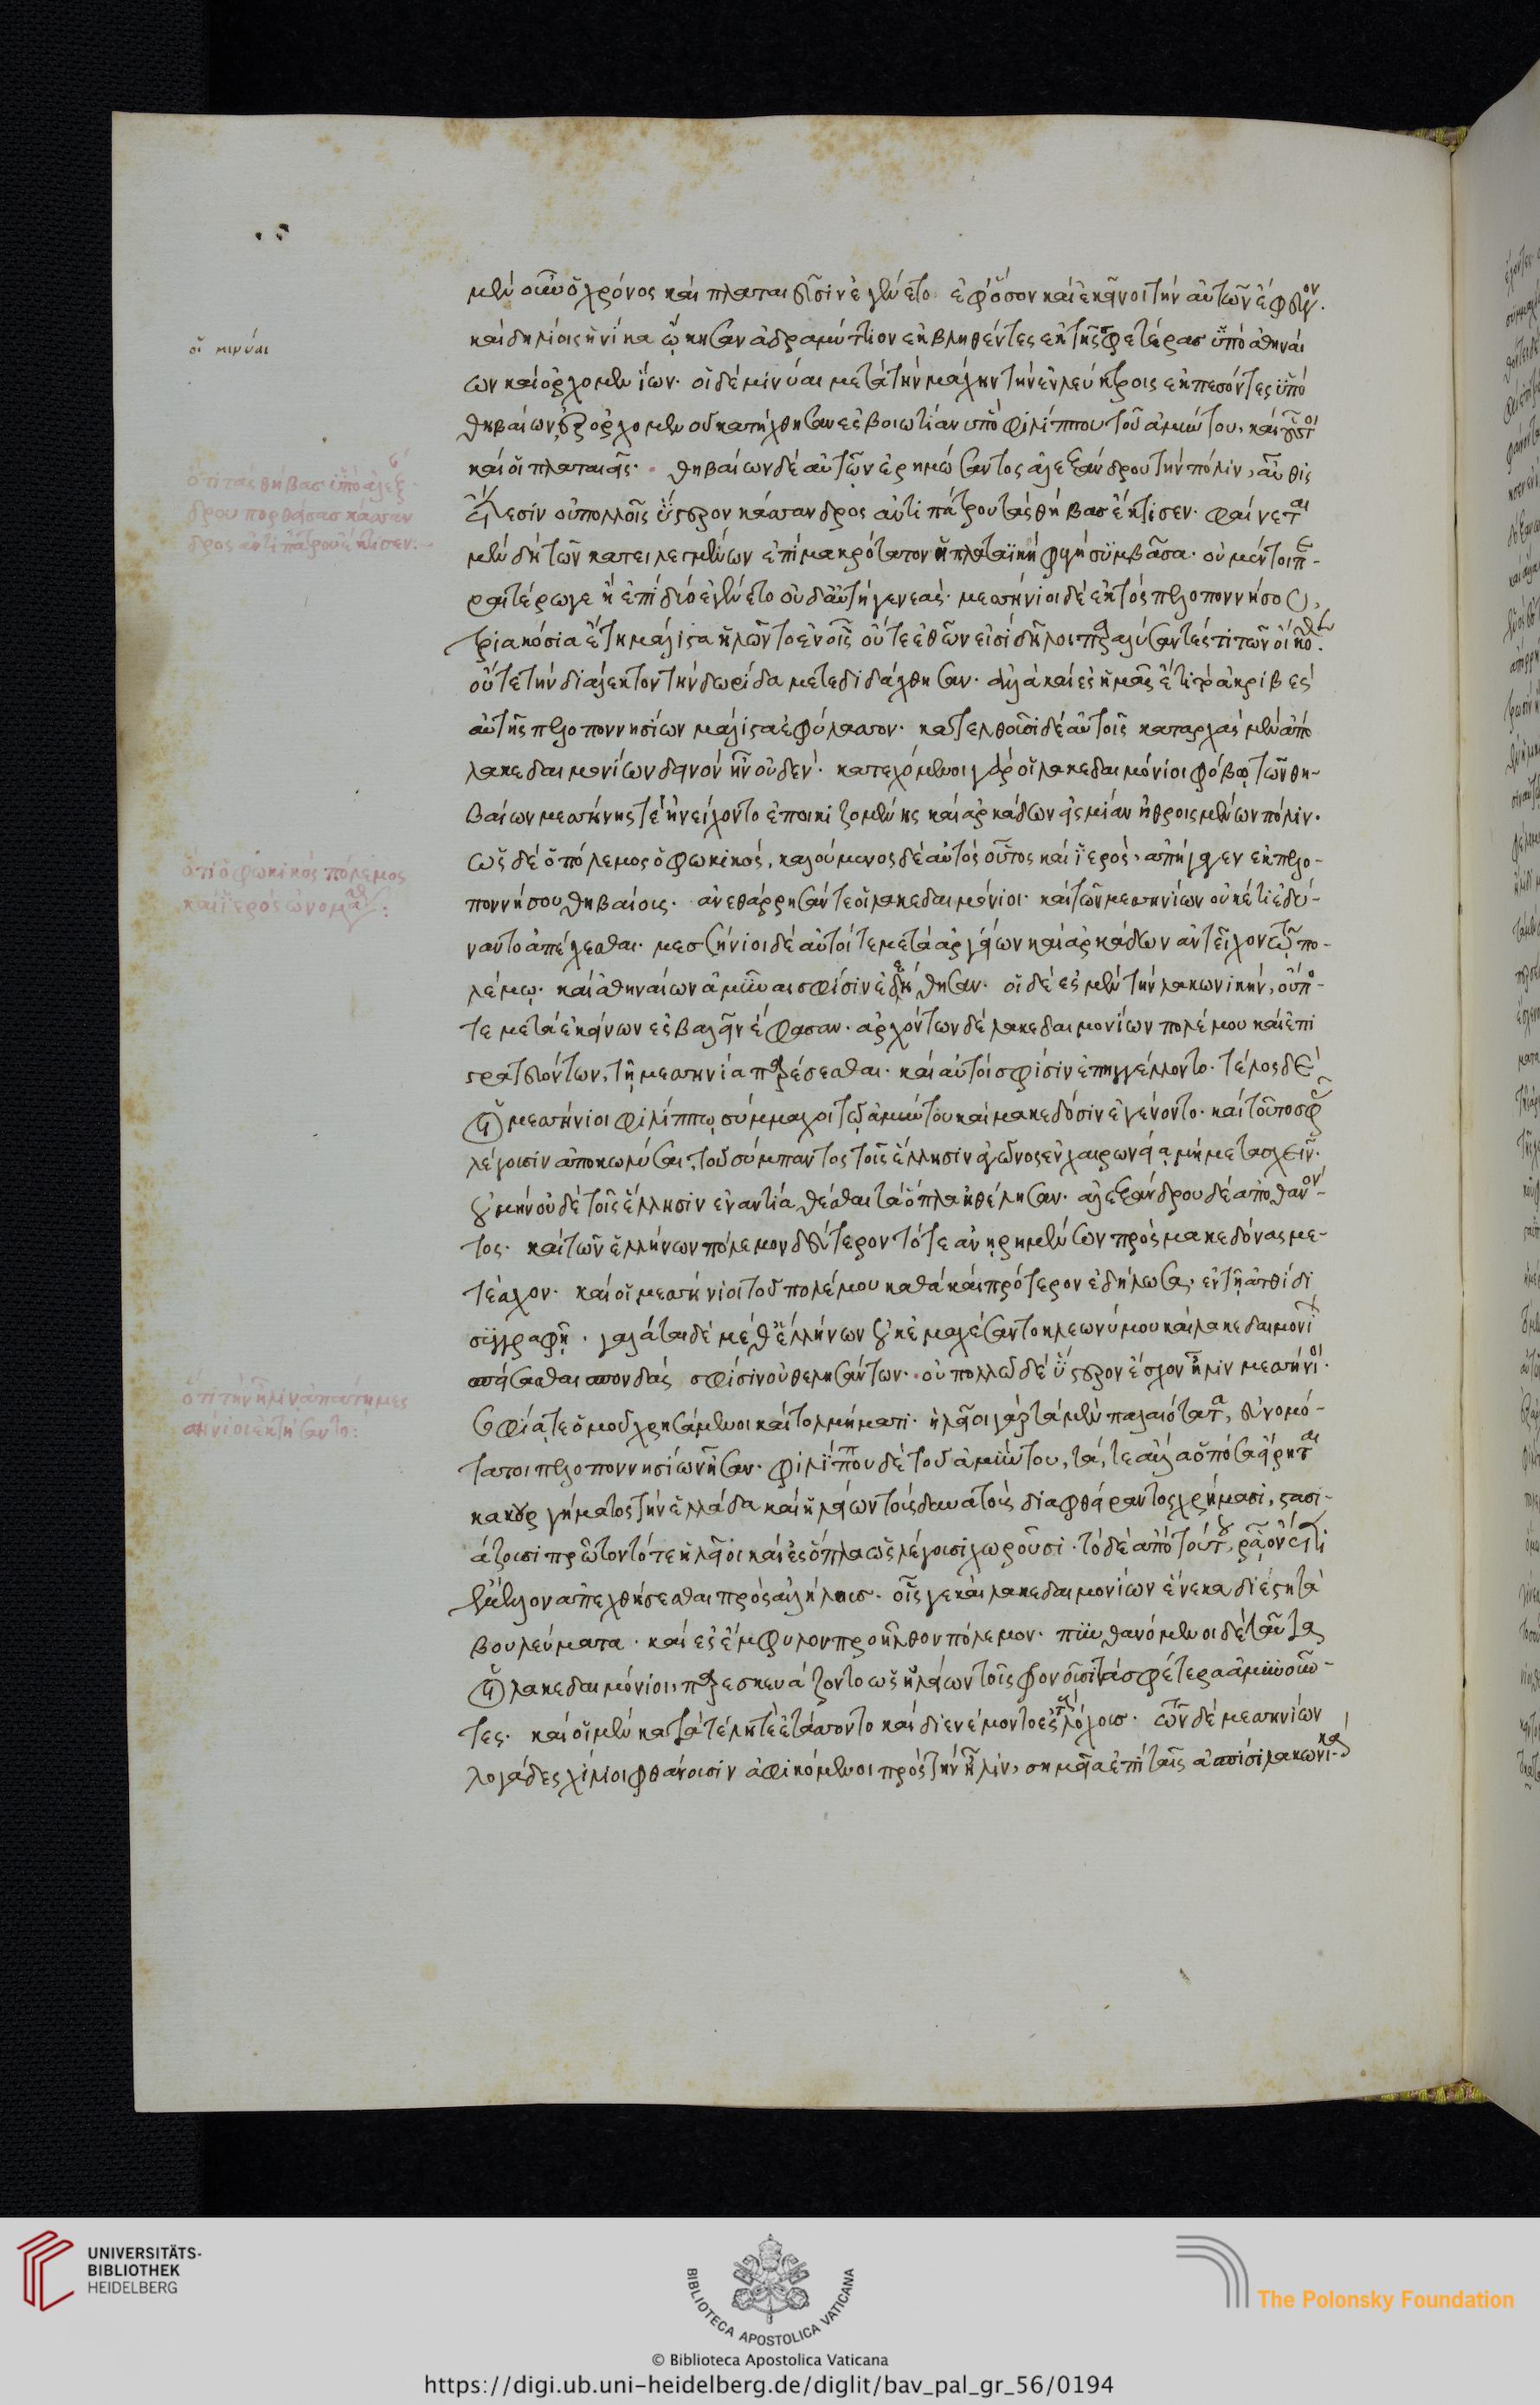 μὲν οὖν ὁ χρόνος καὶ πλαταιεῦσιν ἐγένετο ἐφ' ὅσον καὶ ἐκεῖνοι τὴν αὐτῶν ἔφευγον.
οἱ μινύαι
καὶ δηλίοις ἡνίκα ᾤκησαν ἀδραμύττιον ἐκβληθέντες ἐκ τῆς σφετέρας ὑπὸ ἀθηναί
ων καὶ ὀρχομενίων. οἱ δὲ μινύαι μετὰ τὴν μάχην τὴν ἐν λεύκτροις ἐκπεσόντες ὑπὸ
θηβαίων ἐξ ὀρχομενοῦ κατήχθησαν ἐς βοιωτίαν ὑπὸ φιλίππου τοῦ ἀμύντου, καὶ οὗτοι
καὶ οἱ πλαταιεῖς. θηβαίων δὲ αὐτῶν ἐρημώσαντος ἀλεξάνδρου τὴν πόλιν, αὖθις
ὅτι τὰς θήβας ὑπὸ ἀλεξ
δρου πορθείσας κάσσαν
δρος ἀντιπάτρου ἔκτισεν.
ἔτεσιν οὐ πολλοῖς ὕστερον κάσσανδρος ἀντιπάτρου τὰς θήβας ἔκτισεν. φαίνεται
μὲν δὴ τῶν κατειλεγμένων ἐπὶ μακρότατον ἡ πλαταϊκὴ φυγὴ συμβᾶσα. οὐ μέντοι πε-
ραιτέρω γε ἢ ἐπὶ δύο ἐγένετο οὐδ' αὐτὴ γενεάς. μεσσήνιοι δὲ ἐκτὸς πελοποννήσου,
τριακόσια ἔτη μάλιστα ἠλῶντο ἐν οἷς οὔτε ἐθῶν εἰσὶ δῆλοι παραλύσαντές τι τῶν οἴκοθεν.
οὔτε τὴν διάλεκτον τὴν δωρίδα μετεδιδάχθησαν. ἀλλὰ καὶ ἐς ἡμᾶς ἔτι τὸ ἀκριβὲς
αὐτῆς πελοποννησίων μάλιστα ἐφύλασσον. κατελθοῦσι δὲ αὐτοῖς καταρχὰς μὲν ἀπὸ
λακεδαιμονίων δεινὸν ἦν οὐδέν. κατεχόμενοι γὰρ οἱ λακεδαιμόνιοι φόβῳ τῶν θη-
βαίων μεσσήνης τε ἠνείχοντο ἐποικιζομένης καὶ ἀρκάδων εἰς μίαν ἠθροισμένων πόλιν.
ὡς δὲ ὁ πόλεμος ὁ φωκικός, καλούμενος δὲ αὐτὸς οὗτος καὶ ἱερός, ἀπήγαγεν ἐκ πελο-
ὅτι ὁ φωκικὸς πόλεμος
καὶ ἱερὸς ὠνομάσθη:
ποννήσου θηβαίους. ἀνεθάρρησάν τε οἱ λακεδαιμόνιοι. καὶ τῶν μεσσηνίων οὐκέτι ἐδύ-
ναντο ἀπέχεσθαι. μεσσήνιοι δὲ αὐτοί τε μετὰ ἀργείων καὶ ἀρκάδων ἀντεῖχον τῷ πο-
λέμῳ. καὶ ἀθηναίων ἀμῦναι σφίσιν ἐδεήθησαν. οἱ δὲ ἐς μὲν τὴν λακωνικήν, οὔπο-
τε μετὰ ἐκείνων ἐσβαλεῖν ἔφασαν. ἀρχόντων δὲ λακεδαιμονίων πολέμου καὶ ἐπι
στρατευόντων, τῇ μεσσηνίᾳ παρέσεσθαι. καὶ αὐτοὶ σφίσιν ἐπηγγέλλοντο. τέλος δὲ
οἱ μεσσήνιοι φιλίππῳ σύμμαχοι τῷ ἀμύντου καὶ μακεδόσιν ἐγένοντο. καὶ τοῦτο σφᾶς
λέγουσιν ἀποκωλῦσαι, τοῦ συμπάντος τοῖς ἕλλησιν ἀγῶνος ἐν χαιρωνείᾳ μὴ μετασχεῖν.
οὐ μὴν οὐδὲ τοῖς ἕλλησιν ἐναντία θέσθαι τὰ ὅπλα ἠθέλησαν. ἀλεξάνδρου δὲ ἀποθανόν-
τος. καὶ τῶν ἑλλήνων πόλεμον δεύτερον τότε ἀνῃρημένων πρὸς μακεδόνας με-
τέσχον. καὶ οἱ μεσσήνιοι τοῦ πολέμου καθὰ καὶ πρότερον ἐδήλωσα, ἐν τῇ ἀτθίδι
συγγραφῇ. γαλάταις δὲ μεθ' ἑλλήνων οὐκ ἐμαχέσαντο κλεωνύμου καὶ λακεδαιμονίων
σπείσασθαι σπονδάς σφίσιν οὐ θελησάντων. οὐ πολλῷ δὲ ὕστερον ἔσχον ἦλιν μεσσήνιοι.
ὅτι τὴν ἦλιν ἀπάτῃ μεσ
σήνιοι ἐκτήσαντο:
σοφίᾳ τε ὁμοῦ χρησάμενοι καὶ τολμήματι. ἠλεῖοι γὰρ τὰ μὲν παλαιότατα, εὐνομώ-
τατοι πελοποννησίων ἦσαν. φιλίππου δὲ τοῦ ἀμύντου, τά τε ἄλλα ὁπόσα εἴρηται
κακουργήματος τὴν ἑλλάδα καὶ ἠλείων τοὺς δυνατοὺς διαφθείραντος χρήμασι, στασι-
άζουσι πρῶτον τότε ἠλεῖοι καὶ ἐς ὅπλα ὡς λέγουσι χωροῦσι. τὸ δὲ ἀπὸ τούτου, ῥᾷον ἔτι
ἔμελλον ἀπεχθήσεσθαι πρὸς ἀλλήλους. οἷς γε καὶ λακεδαιμονίων ἕνεκα διέστη τὰ
βουλεύματα. καὶ ἐς ἔμφυλον προῆλθον πόλεμον. πυνθανόμενοι δὲ ταῦτα
οἱ λακεδαιμόνιοι, παρεσκευάζοντο ὡς ἠλείων τοῖς φρονοῦσι τὰ σφέτερα ἀμυνοῦν-
τες. καὶ οἱ μὲν κατὰ τέλη τε ἐτάσσοντο καὶ διενέμοντο ἐς λόχους. τῶν δὲ μεσσηνίων
λογάδες χίλιοι φθάνουσιν ἀφικόμενοι πρὸς τὴν ἦλιν, σημεῖα ἐπὶ ταῖς ἀσπίσι λακωνικὰ
UNIVERSITÄTS-
BIBLIOTHEK
HEIDELBERG
BIBLIOTECA APOSTOLICA VATICANA
The Polonsky Foundation
© Biblioteca Apostolica Vaticana
https://digi.ub.uni-heidelberg.de/diglit/bav_pal_gr_56/0194